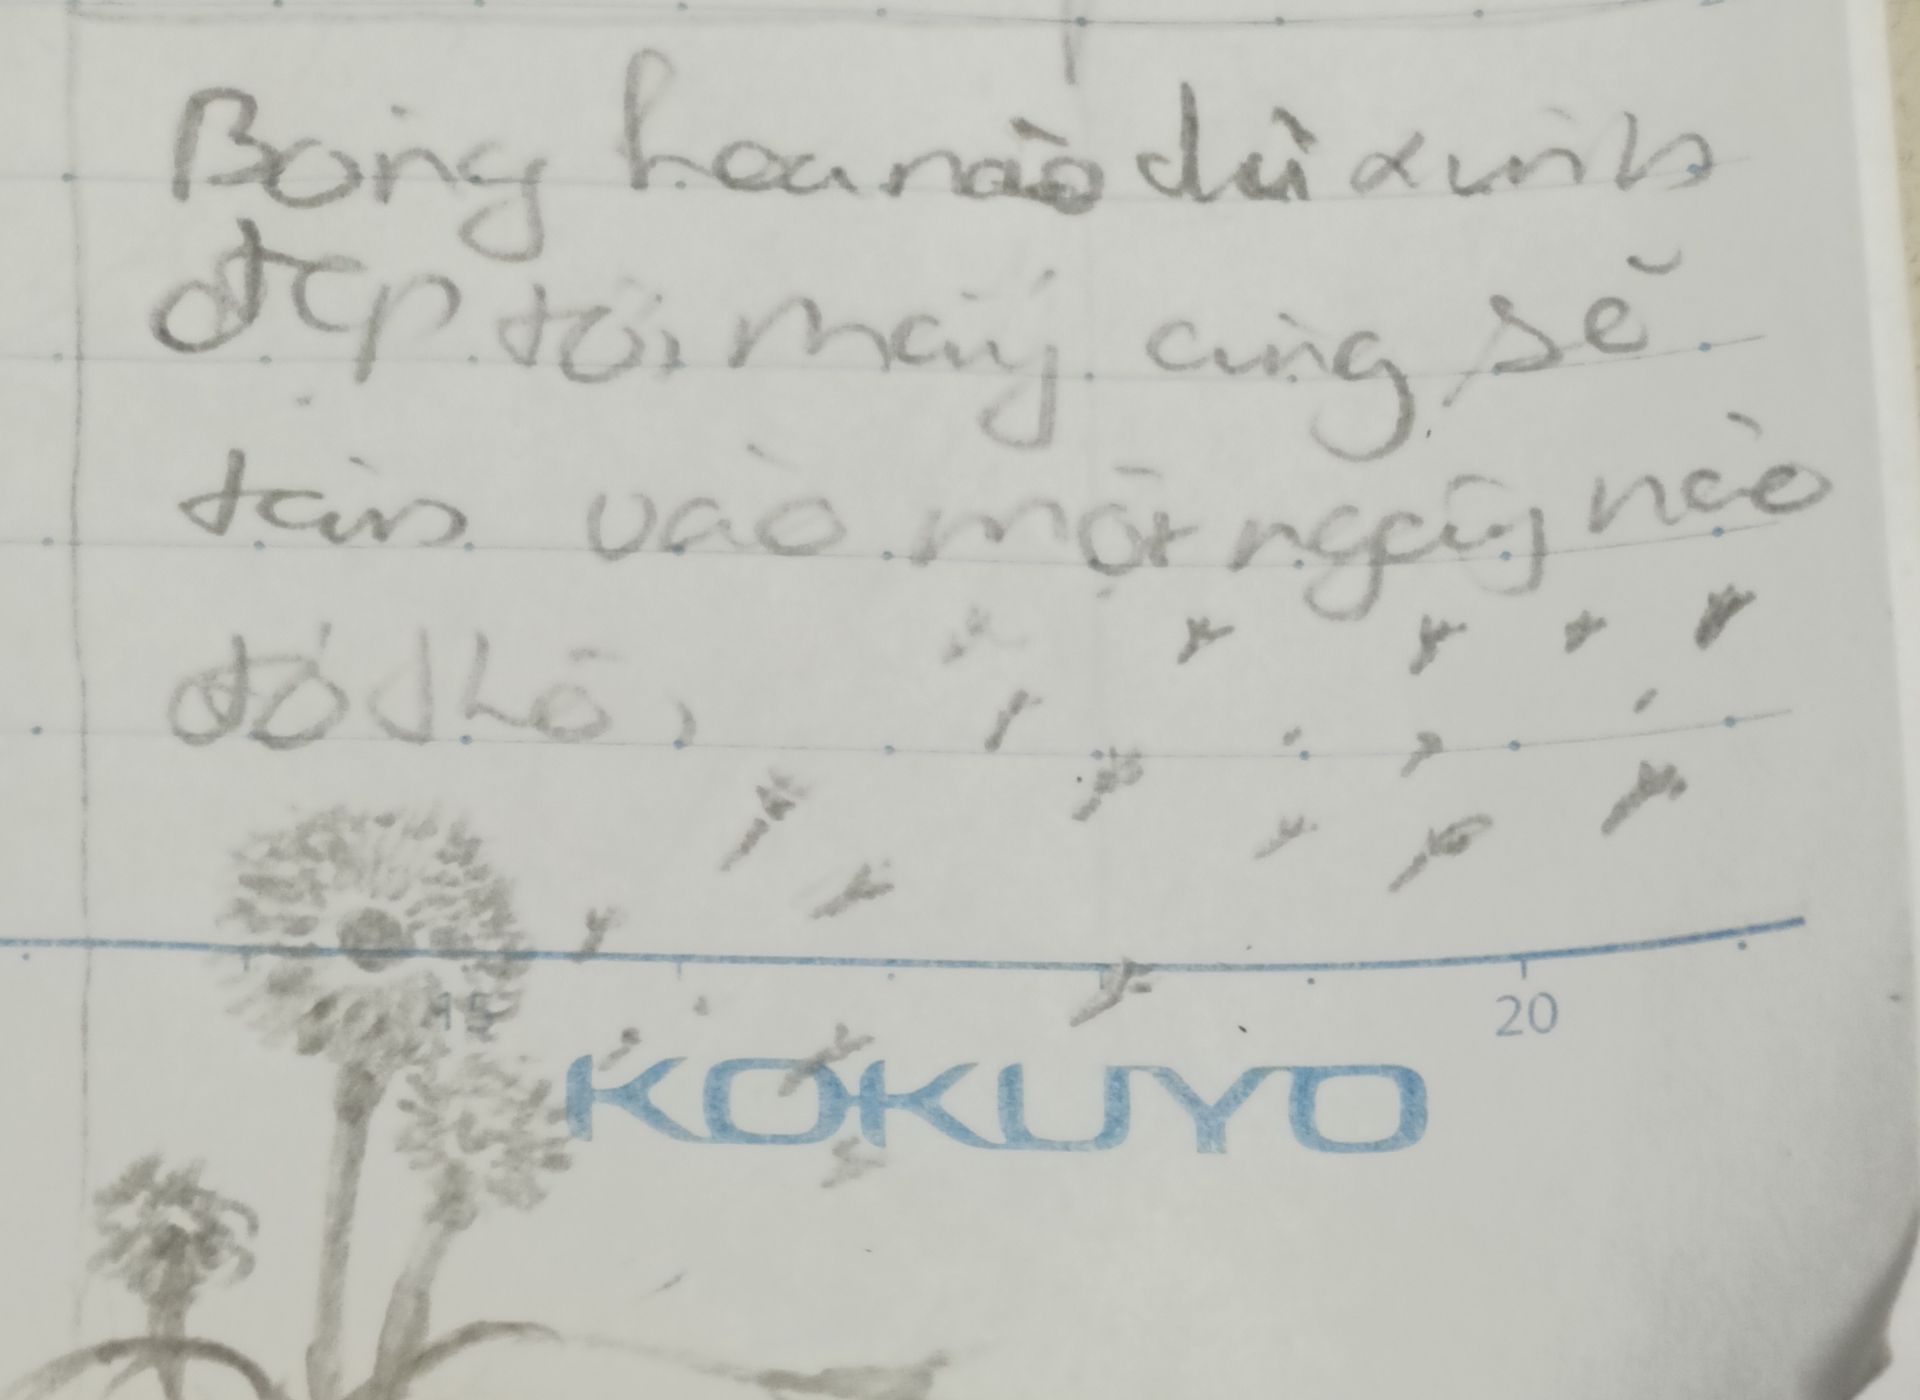 Bông hoa nào dù xinh
đẹp tới mấy cũng sẽ
tàn vào một ngày nào
đó thô,
15
20
KOKUYO